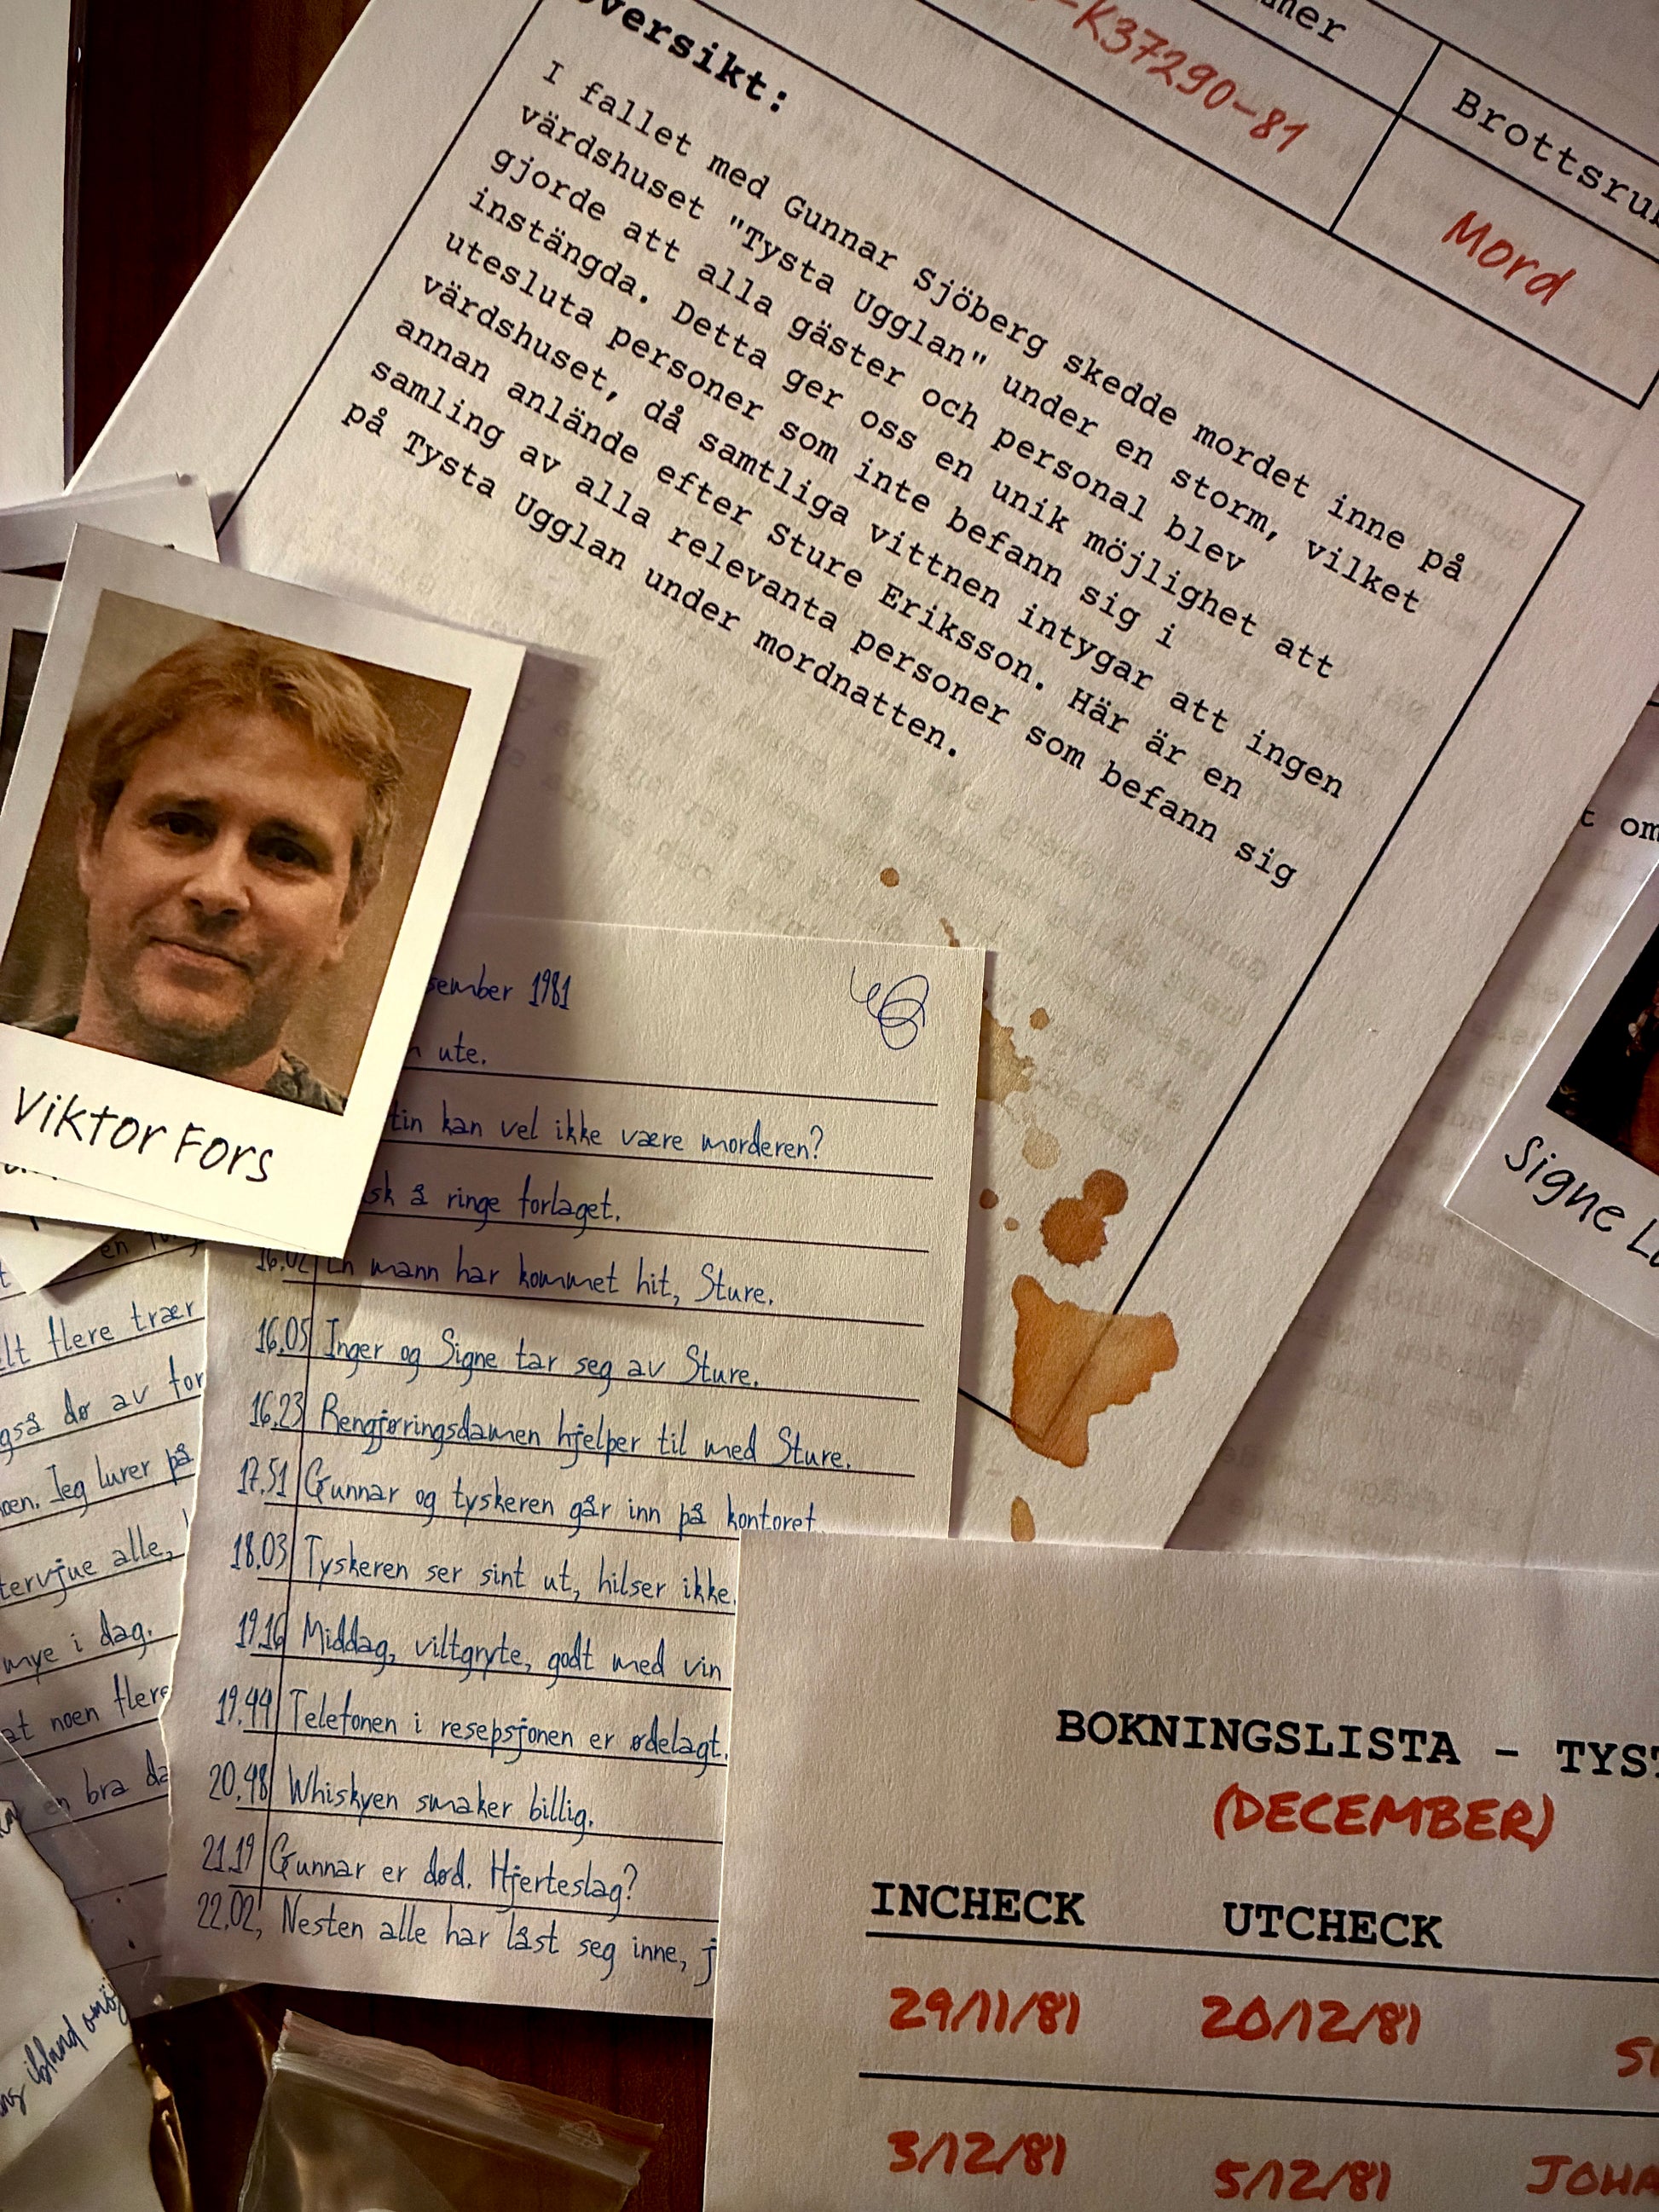 -K37290-81
Mord
versikt:
I fallet med Gunnar Sjöberg skedde mordet inne på
värdshuset "Tysta Ugglan" under en storm, vilket
gjorde att alla gäster och personal blev
instängda. Detta ger oss en unik möjlighet att
utesluta personer som inte befann sig i
värdshuset, då samtliga vittnen intygar att ingen
annan anlände efter Sture Eriksson. Här är en
samling av alla relevanta personer som befann sig
på Tysta Ugglan under mordnatten.
Viktor Fors
Signe
1981
ute.
kan vel ikke være morderen?
å ringe forlaget.
16.02 En mann har kommet hit, Sture.
16.05 Inger og Signe tar seg av Sture.
16.23 Rengjøringsdamen hjelper til med Sture.
17.51 Gunnar og tyskeren går inn på kontoret
18.03 Tyskeren ser sint ut, hilser ikke.
19.16 Middag, viltgryte, godt med vin
19.44 Telefonen i resepsjonen er ødelagt.
20.48 Whiskyen smaker billig.
21.19 Gunnar er død. Hjerteslag?
22.02, Nesten alle har låst seg inne, j
flere trær
dø av
Jeg lurer på
alle,
mye i dag.
at noen flere
en bra da
ibland
BOKNINGSLISTA - TYST
(DECEMBER)
INCHECK UTCHECK
29/11/81 20/12/81
3/12/81 5/12/81 JOHA